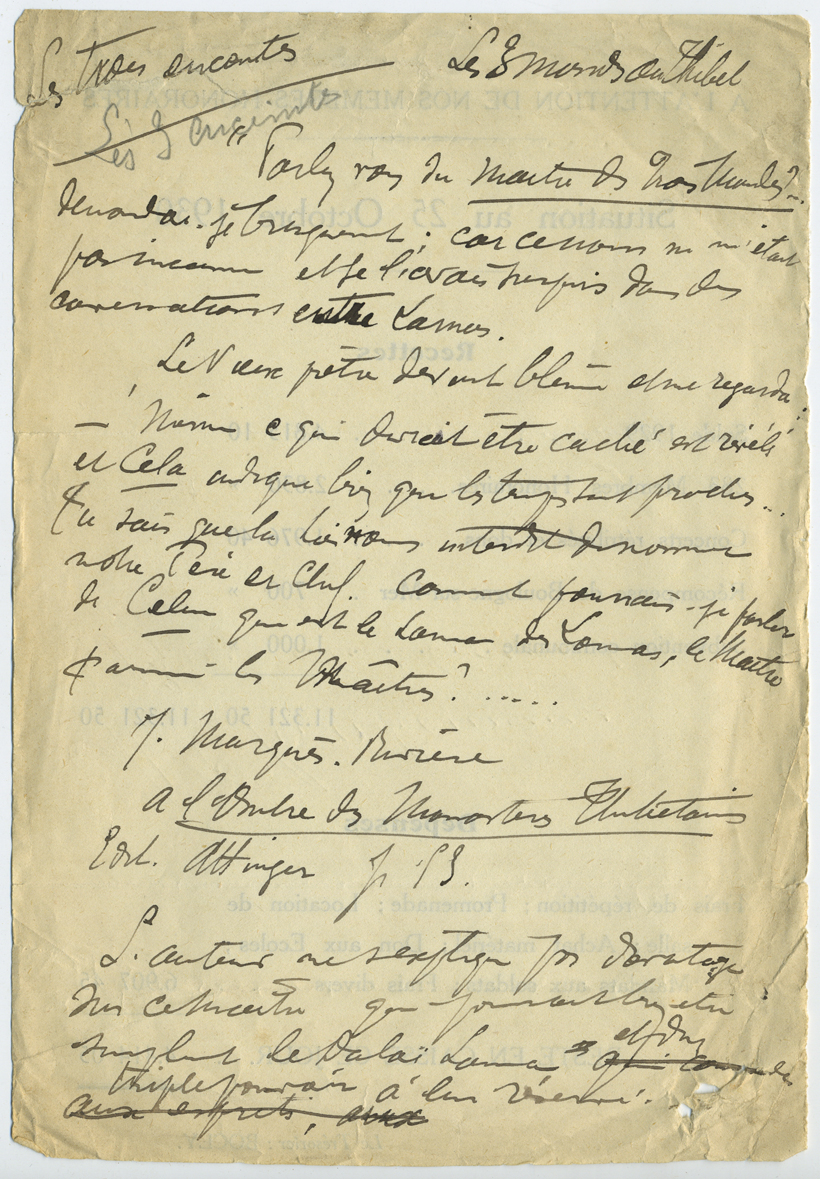 Les trois enceintes
Les 3 mondes au Thibet
Les 3 enceintes
A L'ATTENTION DE NOS MEMBRES HONORAIRES
"Parlez vous du Maître des Trois Mondes?..
Situation au 25 Octobre
demandai-je brusquement; car ce nom ne m'était
pas inconnu et je l'avais surpris dans des
conversations entre Lamas.
Recettes
Le Vieux prêtre devint blême et me regarda:
— Même ce qui devrait être caché est révélé
et Cela indique bien que les temps sont proches...
Tu sais que la Loi nous interdit de nommer
notre Père et Chef. Comment pourrais-je parler
de Celui qui est le Lama des Lamas, le Maître
parmi les Maîtres? .....
11.321 50 11.321 50
J. Marquès-Rivière
A l'Ombre des Monastères Thibétains
Edit. Attinger p.
Frais de répétition; Promenade; Location de
L'auteur ne s'explique pas davantage
sur ce maître qui pourrait bien être
simplement le Dalaï Lama et du
qui
triple pouvoir à lui réservé.
aux esprits, aux